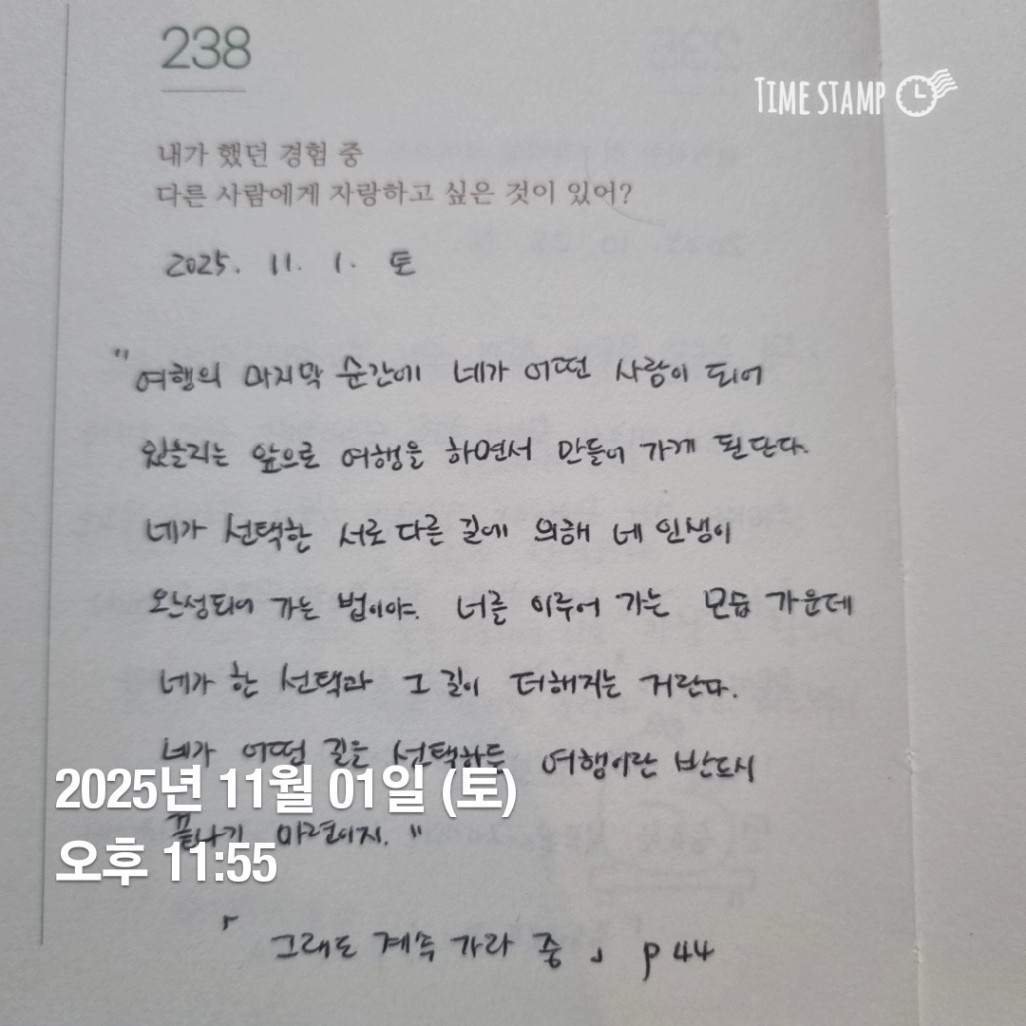 238
TIME STAMP
내가 했던 경험 중
다른 사람에게 자랑하고 싶은 것이 있어?
2025. 11. 1. 토
"여행의 마지막 순간에 네가 어떤 사람이 되어
있을지는 앞으로 여행을 하면서 만들어 가게 된단다.
네가 선택한 서로 다른 길에 의해 네 인생이
완성되어 가는 법이야. 너를 이루어 가는 모습 가운데
네가 한 선택과 그 길이 더해지는 거란다.
네가 어떤 길을 선택하든 여행이란 반드시
2025년 11월 01일 (토)
끝나기 마련이지."
오후 11:55
「그래도 계속 가라 중」 p 44